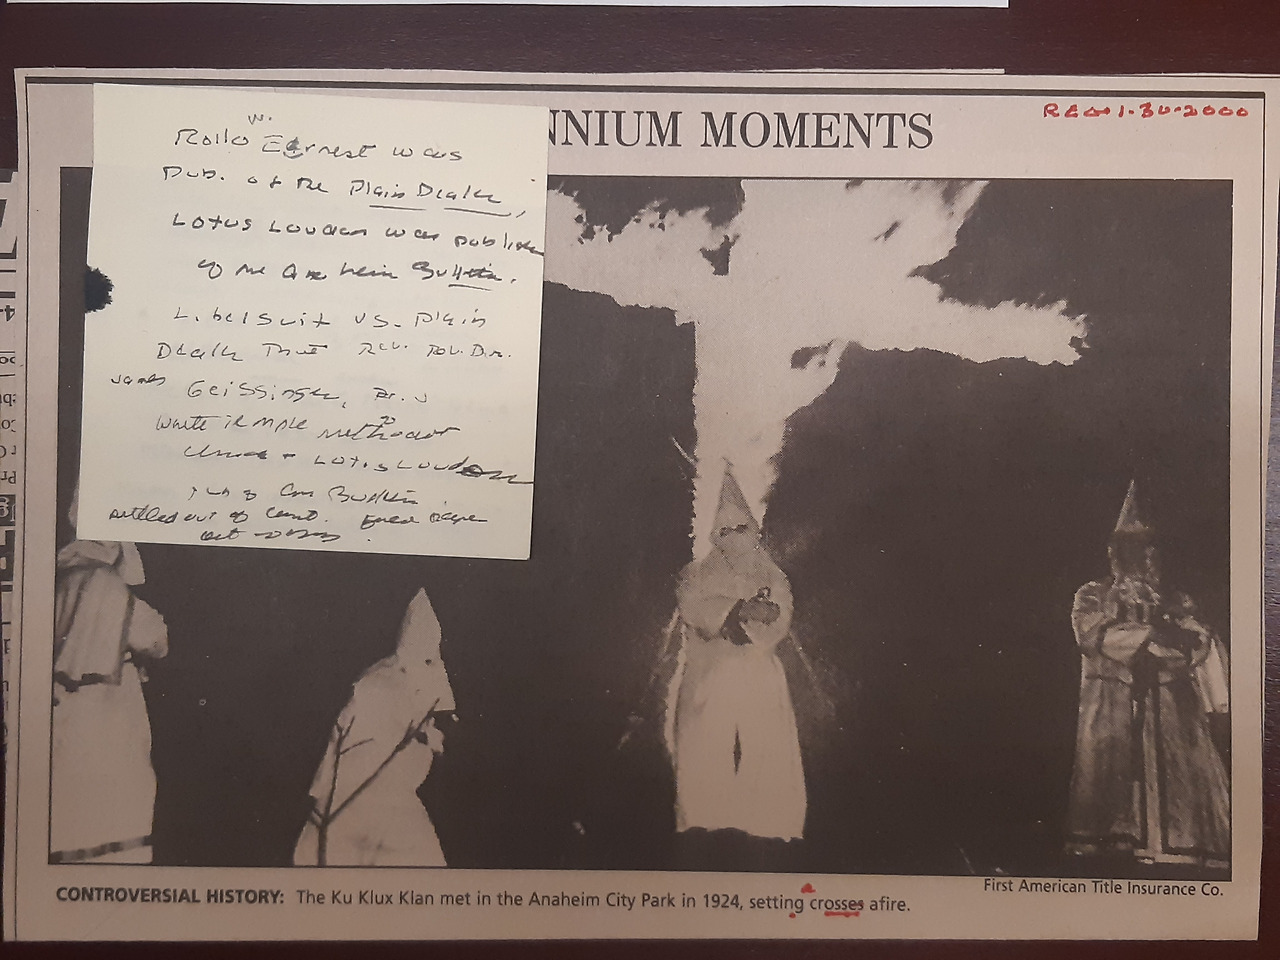 NNIUM MOMENTS
REG 1·30·2000
W.
Rollo Earnest was
Pub. of the Plain Dealer,
Lotus Louden was publisher
of the Anaheim Bulletin.
Libel suit vs. Plain
Dealer Rev.
James Geissinger,
White Temple Methodist
Lotus Louden
settled out of court.
CONTROVERSIAL HISTORY: The Ku Klux Klan met in the Anaheim City Park in 1924, setting crosses afire.
First American Title Insurance Co.